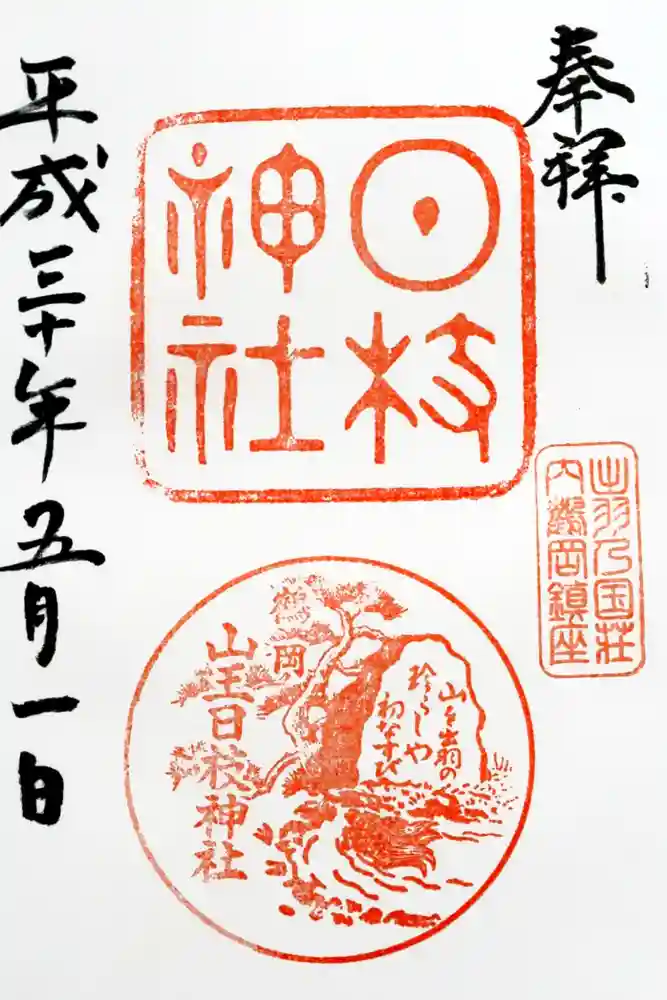 奉拝
日枝
神社
出羽乃国荘
内鶴岡鎮座
山を出羽の
珍らしや
初なすび
鶴岡
山王日枝神社
平成三十年五月一日